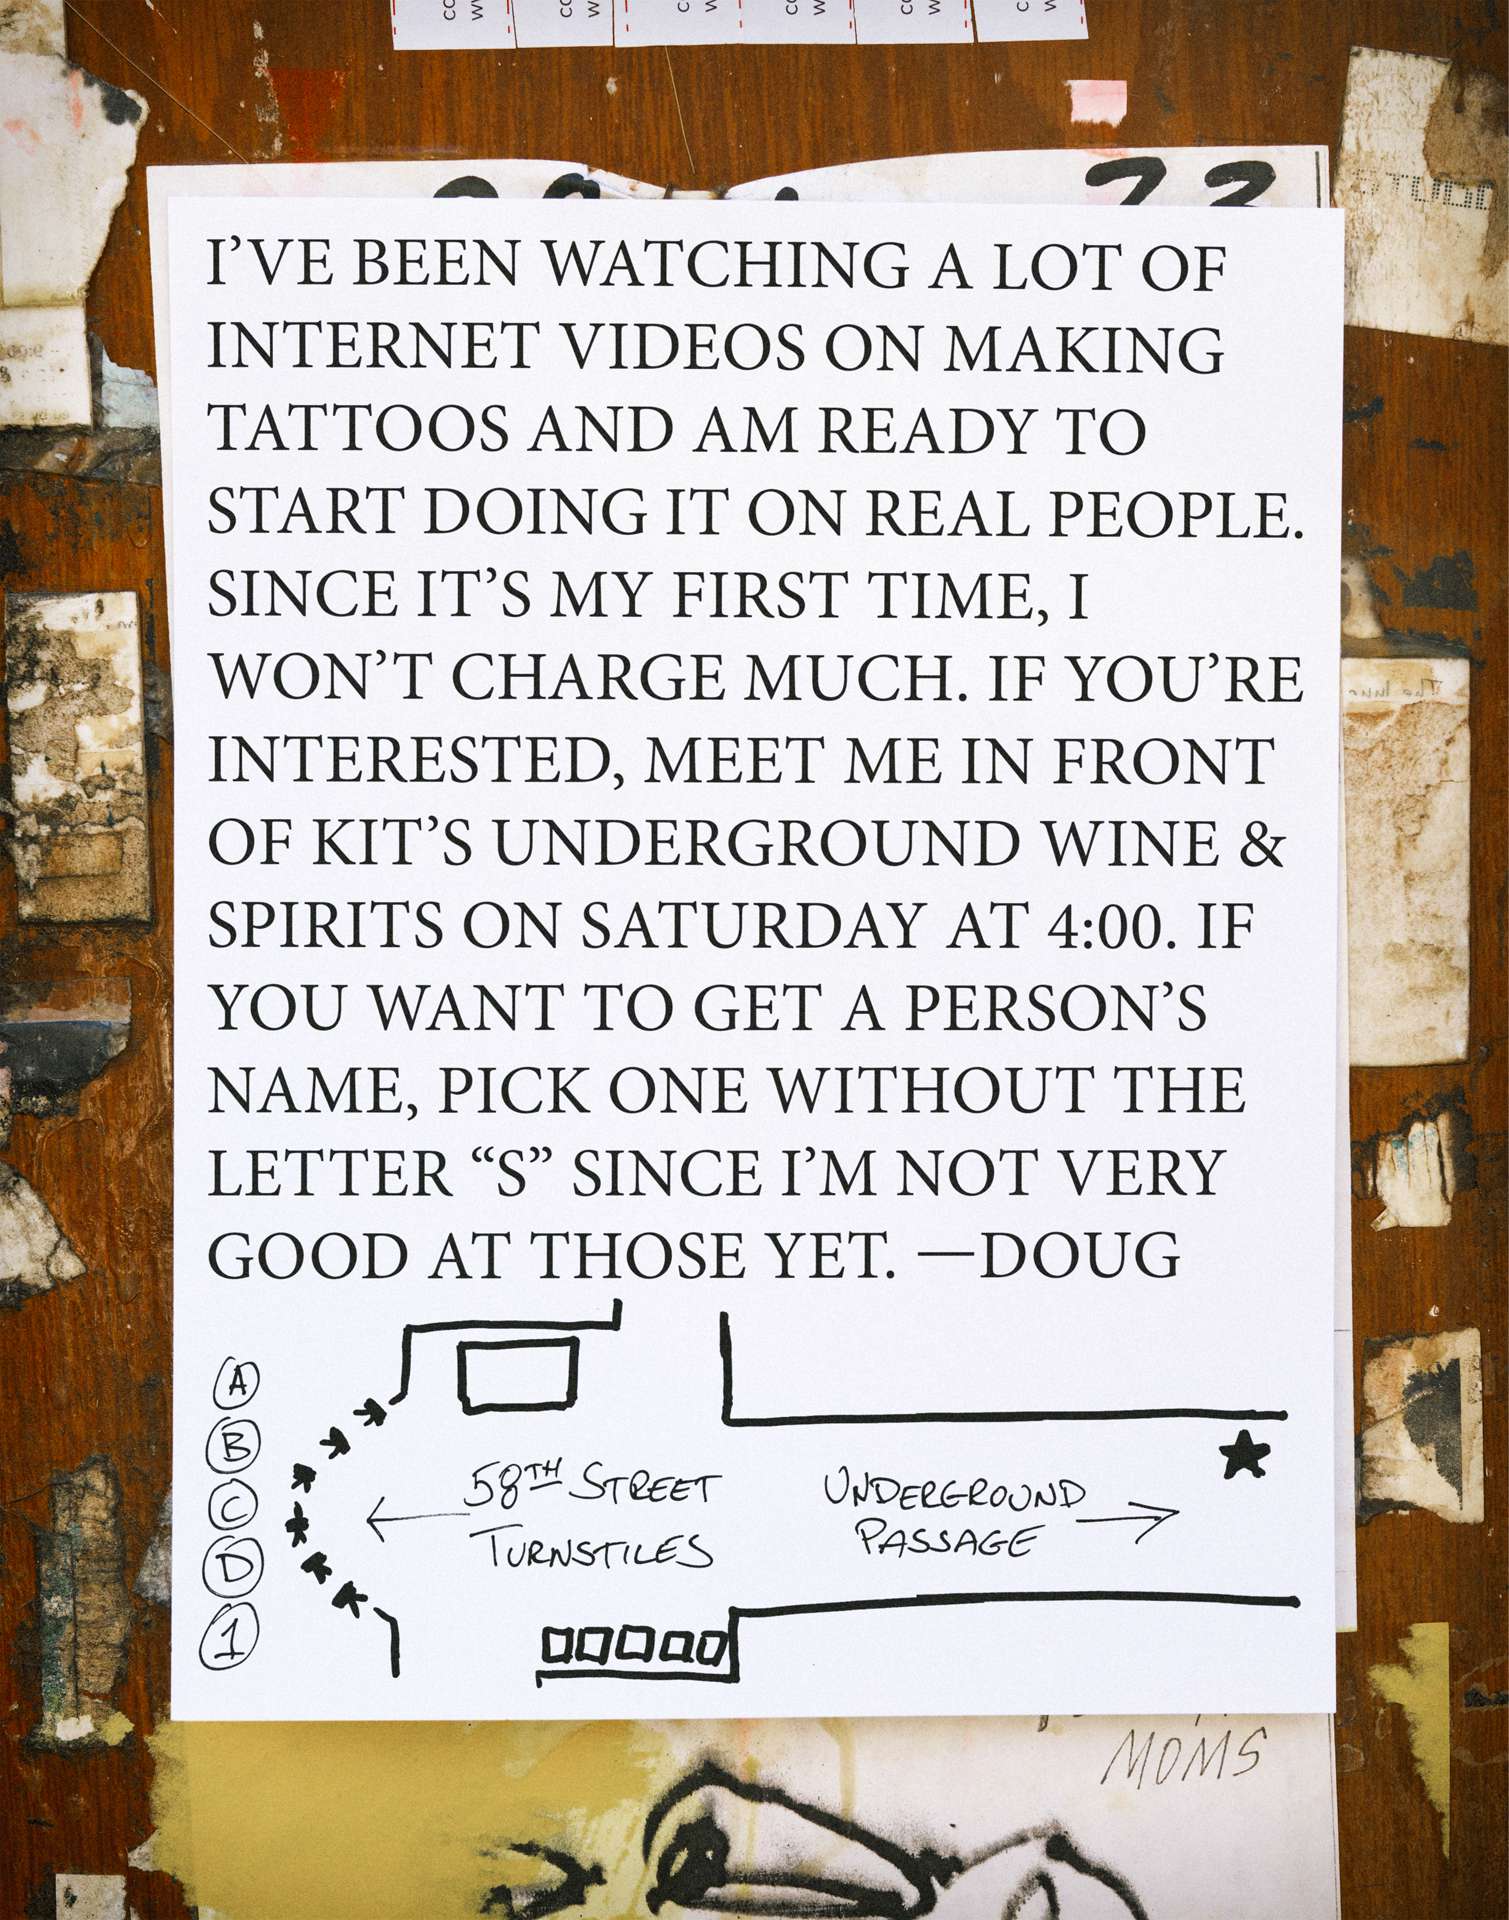 I’VE BEEN WATCHING A LOT OF
INTERNET VIDEOS ON MAKING
TATTOOS AND AM READY TO
START DOING IT ON REAL PEOPLE.
SINCE IT’S MY FIRST TIME, I
WON’T CHARGE MUCH. IF YOU’RE
INTERESTED, MEET ME IN FRONT
OF KIT’S UNDERGROUND WINE &
SPIRITS ON SATURDAY AT 4:00. IF
YOU WANT TO GET A PERSON’S
NAME, PICK ONE WITHOUT THE
LETTER “S” SINCE I’M NOT VERY
GOOD AT THOSE YET. —DOUG
A
B
C
D
1
58TH STREET
TURNSTILES
UNDERGROUND
PASSAGE
MOMS